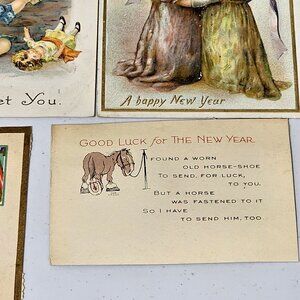 et You.
A happy New Year
GOOD LUCK for THE NEW YEAR.
I FOUND A WORN
OLD HORSE-SHOE
TO SEND, FOR LUCK,
TO YOU.
BUT A HORSE
WAS FASTENED TO IT
SO I HAVE
TO SEND HIM, TOO